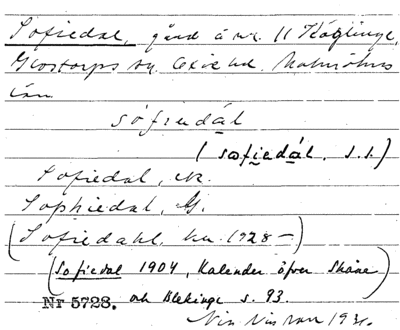 Sofiedal, gård å nr. 11 Kåglinge,
Glostorps sn. Oxie hd. Malmöhus
län
sòfiedál
(sofiedál, s.s.)
Sofiedal, Jr.
Sophiedal, G.
(Sofiedahl. hu. 1928–)
(Sofiedal 1904, Kalender öfver Skåne
Nr 5728. och Blekinge s. 93.)
1931.